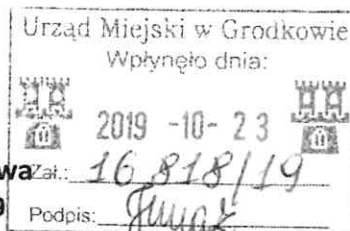 Urząd Miejski w Grodkowie
Wpłynęło dnia:
2019 -10- 23
wa Zał.: 16 818/19
9 Podpis: